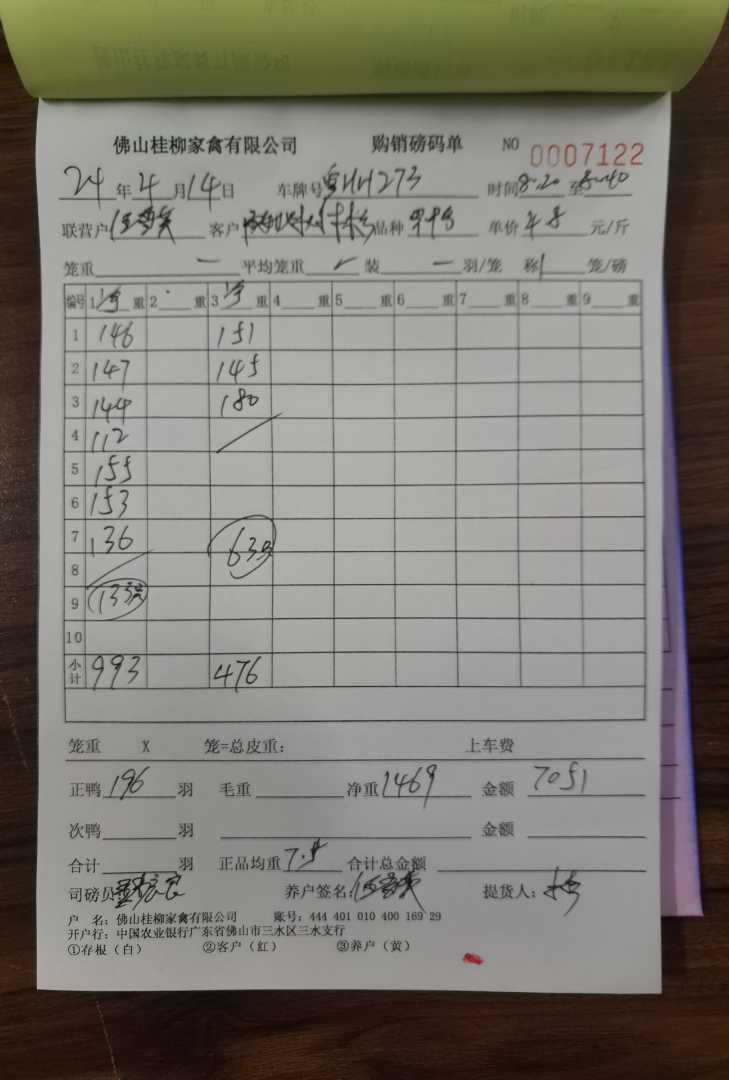 佛山桂柳家禽有限公司 购销磅码单 NO 0007122
24年4月14日 车牌号 HH273 时间8.20至8.40
联营户 客户 品种 单价4.8元/斤
笼重 一 平均笼重 装 一 羽/笼 称1 笼/磅
编号 1 重 2 重 3 重 4 重 5 重 6 重 7 重 8 重 9 重
1 146 151
2 147 145
3 144 180
4 112
5 155
6 153
7 136 63只
8
9 133只
10
小计 993 476
笼重 X 笼=总皮重: 上车费
正鸭 196 羽 毛重 净重1469 金额 7051
次鸭 羽 金额
合计 羽 正品均重7.5 合计总金额
司磅员 养户签名: 提货人:
户 名: 佛山桂柳家禽有限公司 账号: 444 401 010 400 169 29
开户行: 中国农业银行广东省佛山市三水区三水支行
①存根(白) ②客户(红) ③养户(黄)